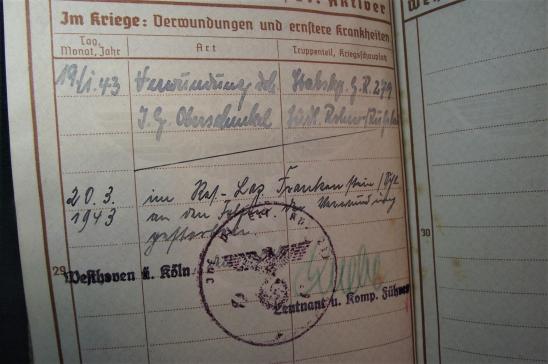 Aktiver
Im Kriege: Verwundungen und ernstere Krankheiten
Tag, Monat, Jahr
Art
Truppenteil, Kriegsschauplatz
19.1.43 Verwundung des Stabskp. G.R. 279
I.G. Oberschenkel Südl.
20.3. im Res-Laz Frankenstein
1943 an den Folgen der Verwundung
gestorben.
29
30
Westhoven b. Köln
Leutnant u. Komp. Führer